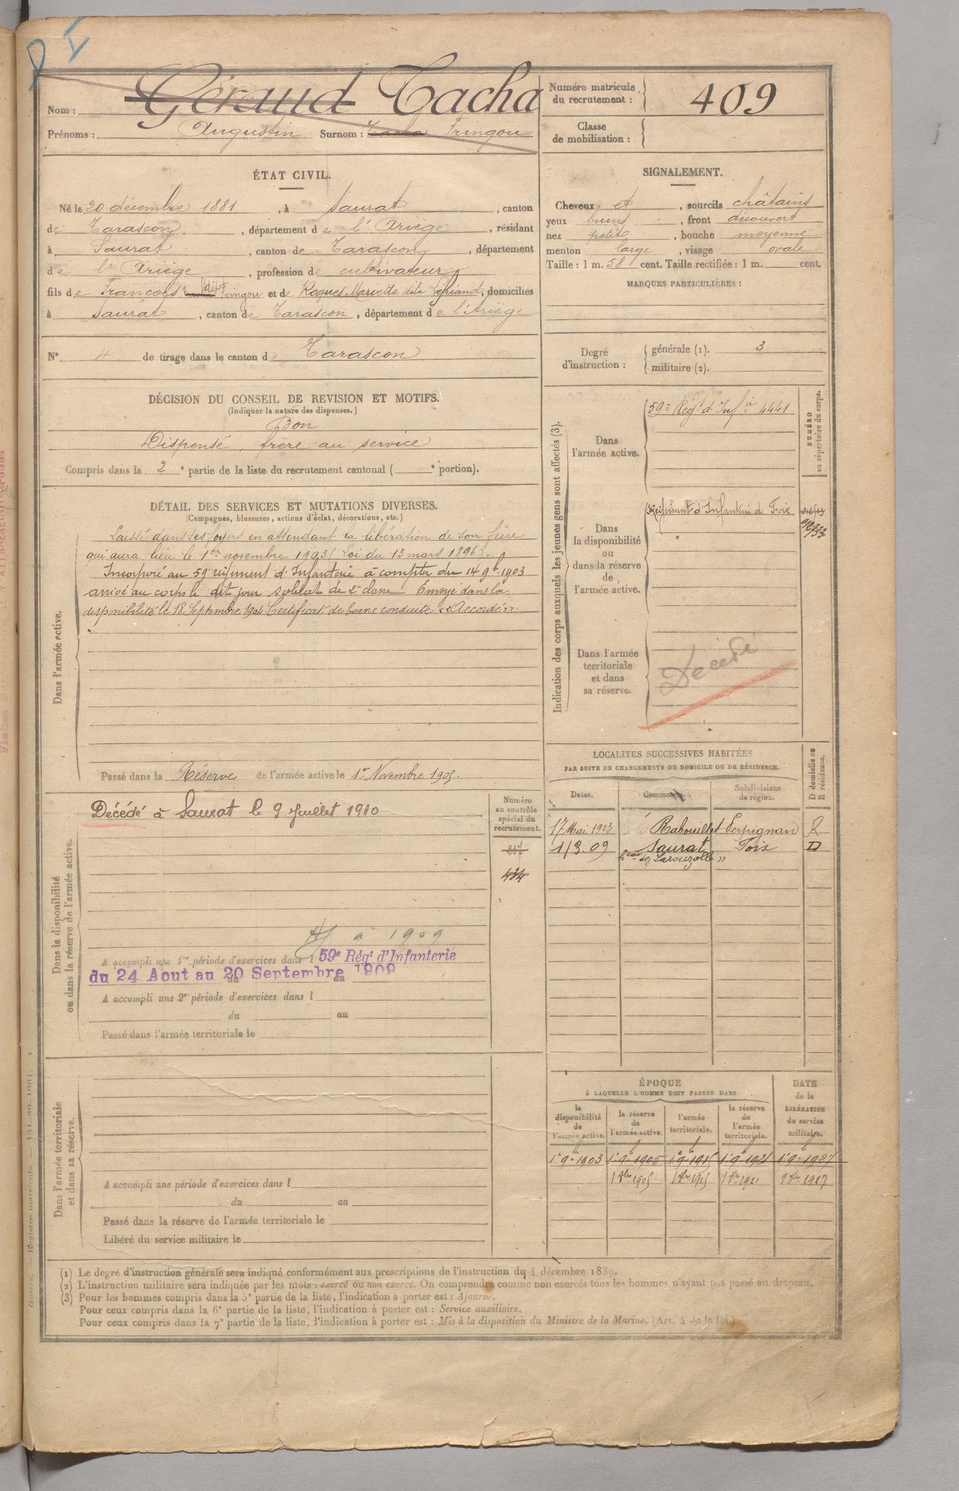 Nom : Géraud Tacha
Numéro matricule du recrutement : 409
Prénoms : Augustin Surnom : Fringou
Classe de mobilisation :
ÉTAT CIVIL.
Né le 20 décembre 1881, à Saurat, canton
de Tarascon, département de l'Ariège, résidant
à Saurat, canton de Tarascon, département
de l'Ariège, profession de cultivateur
fils de François dit Fringou et de Marcelle dite, domiciliés
à Saurat, canton de Tarascon, département de l'Ariège
N° 4 de tirage dans le canton de Tarascon
DÉCISION DU CONSEIL DE REVISION ET MOTIFS.
(Indiquer la nature des dispenses.)
Bon
Dispensé, frère au service
Compris dans la 2e partie de la liste du recrutement cantonal ( e portion).
SIGNALEMENT.
Cheveux et, sourcils châtains
yeux bruns, front découvert
nez petit, bouche moyenne
menton large, visage ovale
Taille : 1 m. 58 cent. Taille rectifiée : 1 m. cent.
MARQUES PARTICULIÈRES :
Degré d'instruction :
générale (1). 3
militaire (2).
DÉTAIL DES SERVICES ET MUTATIONS DIVERSES.
(Campagnes, blessures, actions d'éclat, décorations, etc.)
Dans l'armée active.
Laissé dans ses foyers en attendant la libération de son frère
qui aura lieu le 1er novembre 1903 (Loi du 13 mars 1896).
Incorporé au 59e régiment d'Infanterie à compter du 14 9bre 1903
arrivé au corps le dit jour soldat de 2e classe. Envoyé dans la
disponibilité le 18 Septembre 1904. Certificat de bonne conduite "Accordé".
Passé dans la Réserve de l'armée active le 1er Novembre 1905.
Indication des corps auxquels les jeunes gens sont affectés (3).
NUMÉRO au répertoire du corps.
Dans l'armée active.
59e Régt d'Infie 4441
Dans la disponibilité ou dans la réserve de l'armée active.
Régiment d'Infanterie de Foix
Dans l'armée territoriale et dans sa réserve.
Décédé
Dans la disponibilité ou dans la réserve de l'armée active.
Décédé à Saurat le 9 Juillet 1910
Numéro au contrôle spécial du recrutement.
à 1909
A accompli une 1re période d'exercices dans l 59e Régt d'Infanterie
du 24 Aout au 20 Septembre 1909
A accompli une 2e période d'exercices dans l
du au
Passé dans l'armée territoriale le
LOCALITÉS SUCCESSIVES HABITÉES
PAR SUITE DE CHANGEMENTS DE DOMICILE OU DE RÉSIDENCE.
Dates. Communes. Subdivisions de région. D domicile ou R résidence.
17 Mai 1903 Rabouillet Perpignan R
1/3 09 Saurat Foix D
Dans l'armée territoriale et dans sa réserve.
A accompli une période d'exercices dans l
du au
Passé dans la réserve de l'armée territoriale le
Libéré du service militaire le
ÉPOQUE
À LAQUELLE L'HOMME DOIT PASSER DANS
DATE de la LIBÉRATION du service militaire.
la disponibilité de l'armée active.
la réserve de l'armée active.
l'armée territoriale.
la réserve de l'armée territoriale.
(1) Le degré d'instruction générale sera indiqué conformément aux prescriptions de l'instruction du 4 décembre 1889.
(2) L'instruction militaire sera indiquée par les mots : exercé ou non exercé. On comprendra comme non exercés tous les hommes n'ayant pas passé au drapeau.
(3) Pour les hommes compris dans la 5e partie de la liste, l'indication à porter est : Ajourné.
Pour ceux compris dans la 6e partie de la liste, l'indication à porter est : Service auxiliaire.
Pour ceux compris dans la 7e partie de la liste, l'indication à porter est : Mis à la disposition du Ministre de la Marine.